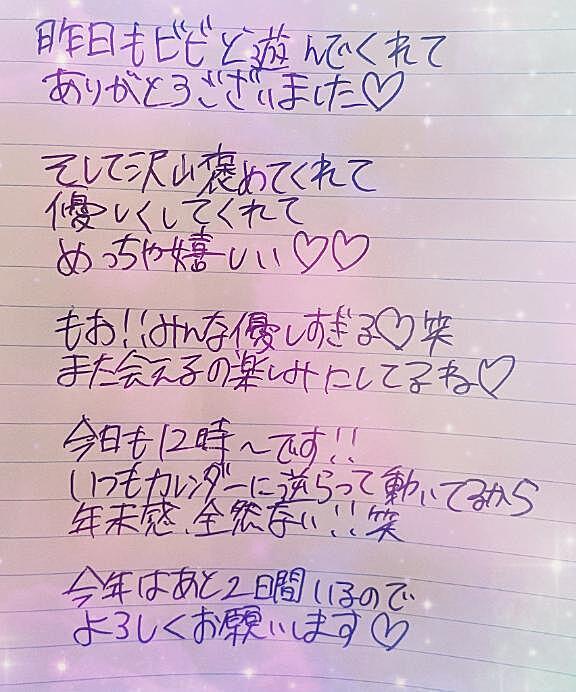 昨日もビビど遊んでくれて
ありがとうございました♡
そして沢山褒めてくれて
優しくしてくれて
めっちゃ嬉しい♡♡
もお!!みんな優しすぎる♡笑
また会える楽しみにしてるね♡
今日も12時～です!!
いつもカレンダーに逆らって動いてるから
年末感、全然ない!!笑
今年はあと2日間いるので
よろしくお願いします♡